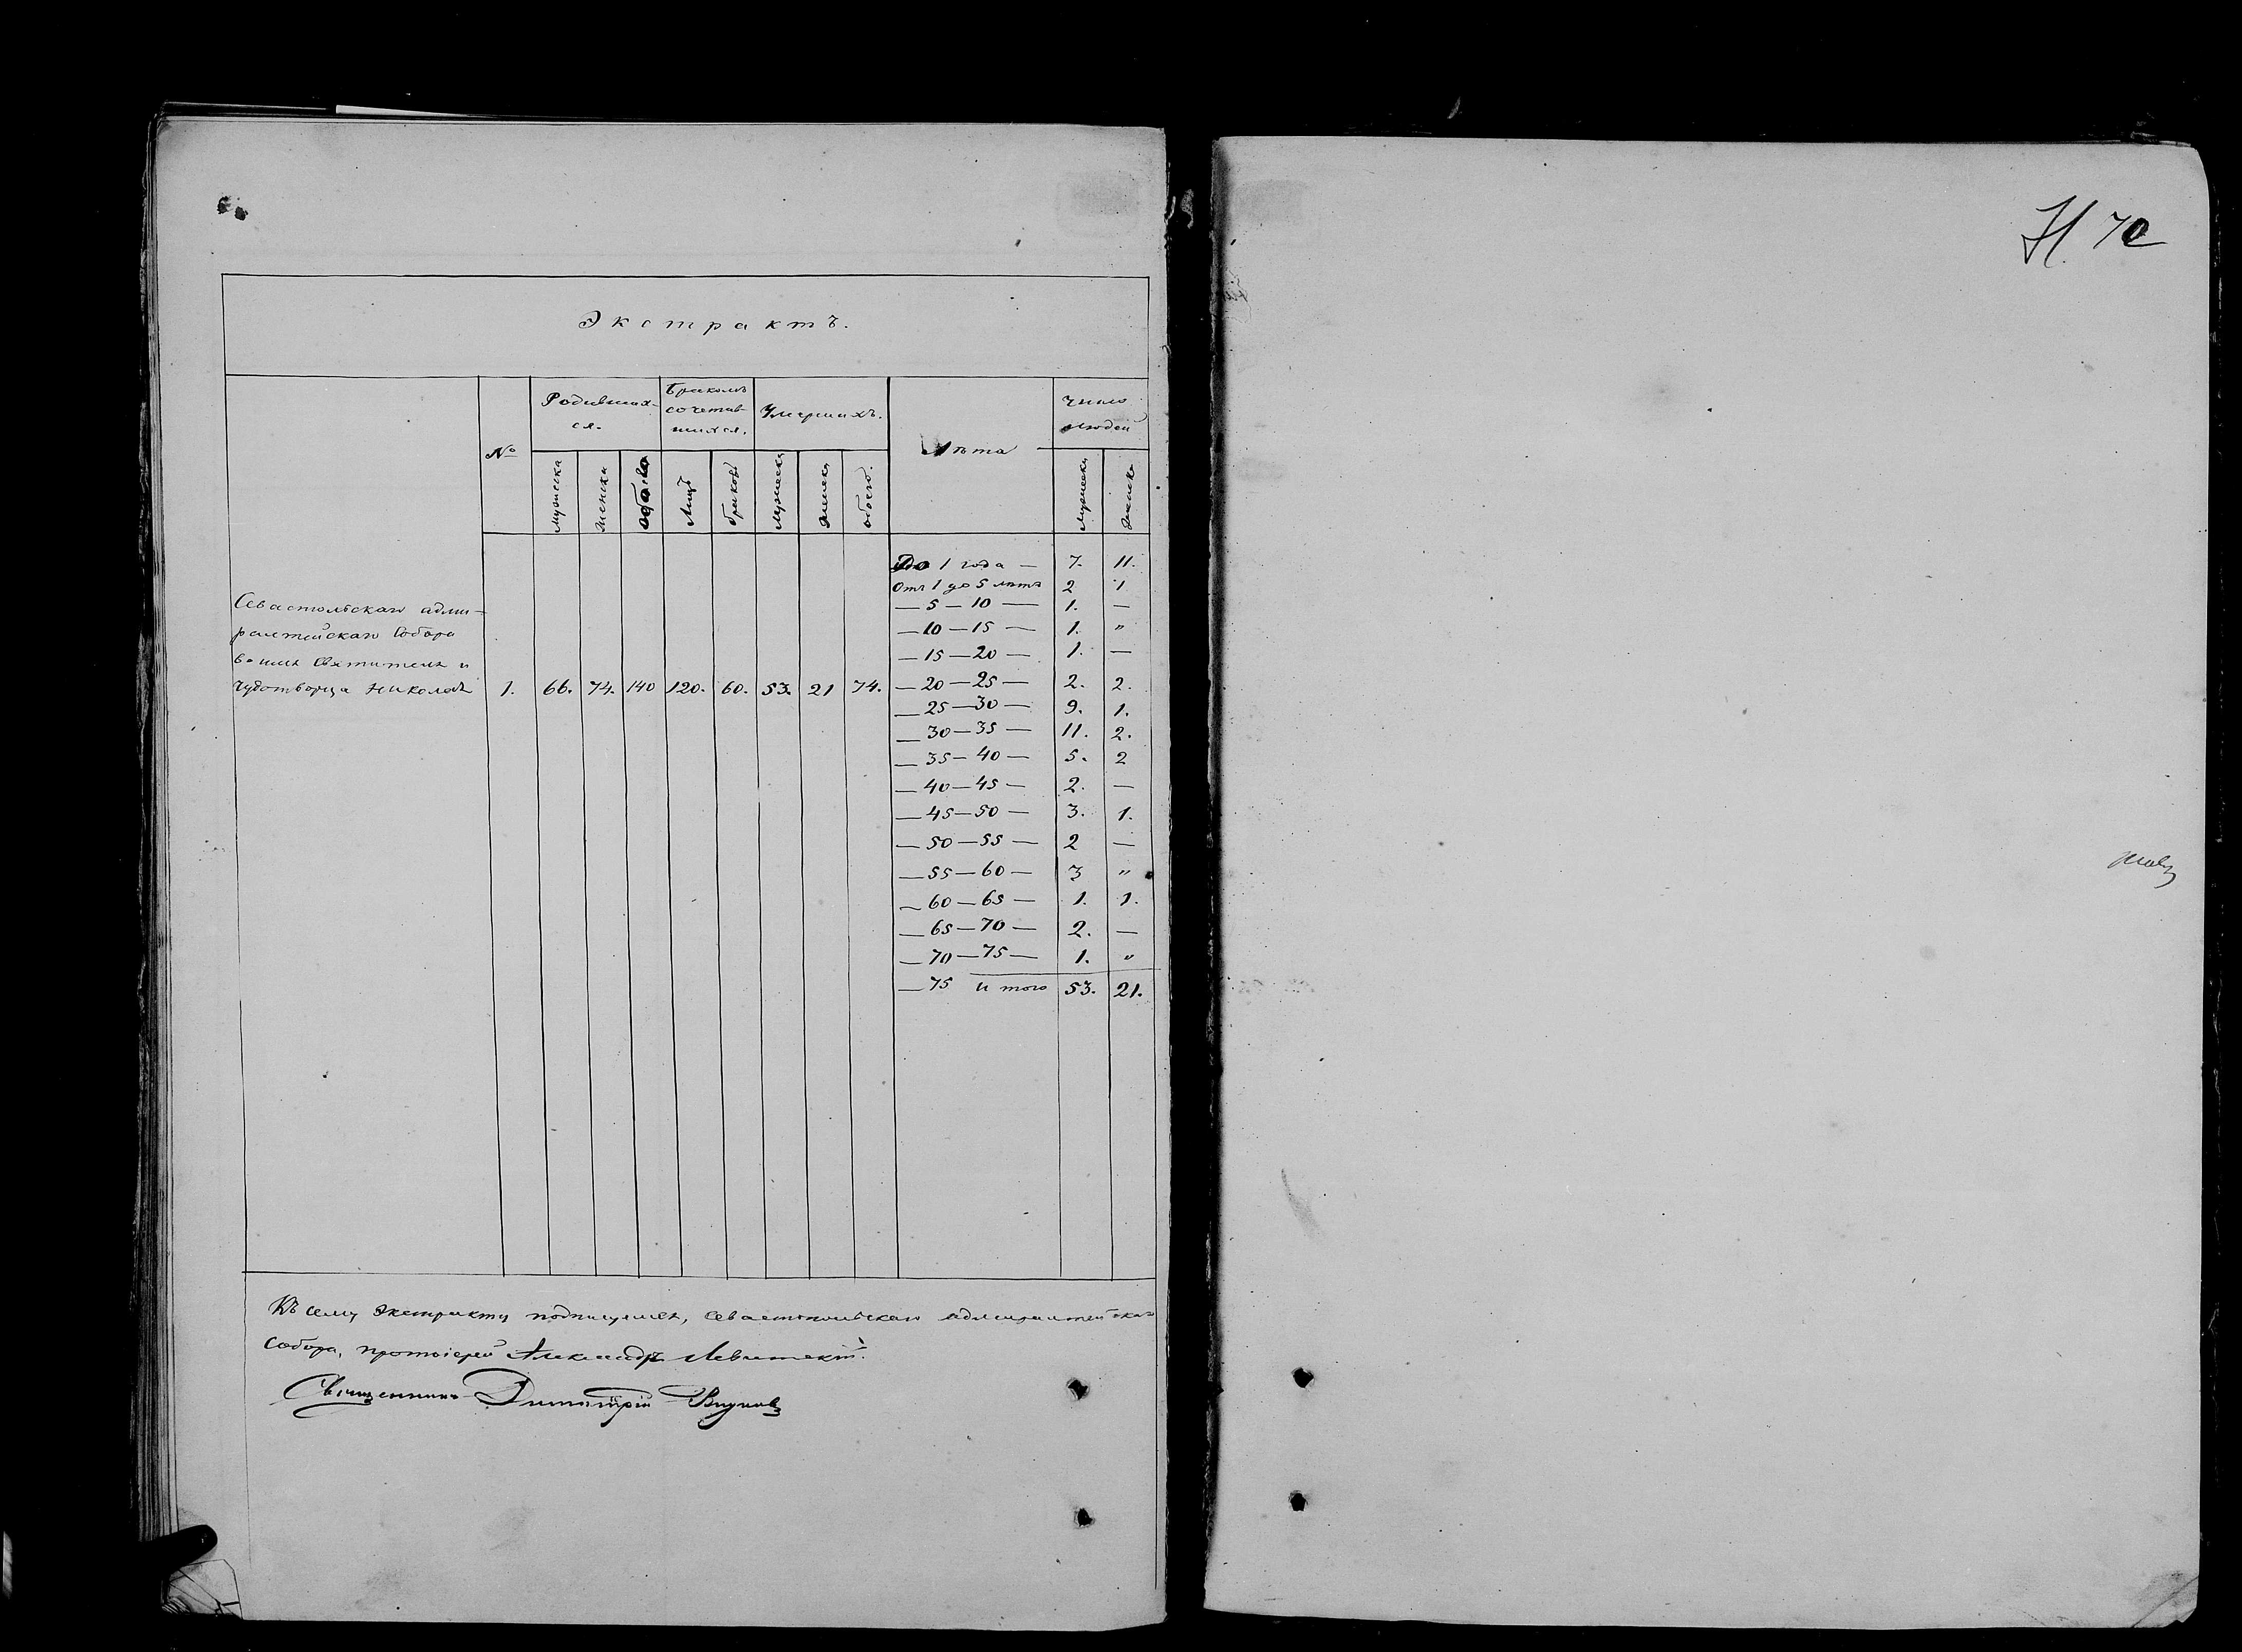 Экстрактъ.
№
Родивших-
ся.
Бракомъ
сочетав-
шихся.
Умершихъ.
Лѣта
Число
людей
мужеска
женска
обоего
Лицъ
браковъ
мужеска
женска
обоего.
мужеска
женска
Севастольскаго адми-
ралтейскаго Собора
во имя Святителя и
Чудотворца Николая 1. 66. 74. 140 120. 60. 53. 21 74.
До 1 года — 7. 11.
Отъ 1 до 5 лѣтъ 2 1
— 5 — 10 — 1. —
— 10 — 15 — 1. "
— 15 — 20 — 1. —
— 20 — 25 — 2. 2.
— 25 — 30 — 9. 1.
— 30 — 35 — 11. 2.
— 35 — 40 — 5. 2
— 40 — 45 — 2. —
— 45 — 50 — 3. 1.
— 50 — 55 — 2 —
— 55 — 60 — 3 "
— 60 — 65 — 1. 1.
— 65 — 70 — 2. —
— 70 — 75 — 1. "
— 75 итого 53. 21.
Къ сему экстракту подписуемся, Севастопольскаго адмиралтейскаго
Собора, протоіерей Александръ Левитскій.
Священникъ Димитрій
70